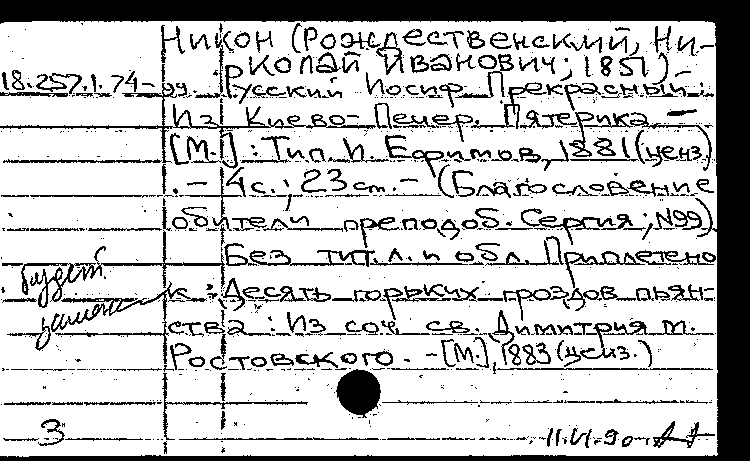 Никон (Рождественский, Ни-
колай Иванович; 1851).-
18.257.1.74-99. Русский Иосиф Прекрасный:
Из Киево-Печер. Патерика. —
[М.]: Тип. И. Ефимов, 1881 (ценз)
. - 4с.; 23 см. - (Благословение
обители преподоб. Сергия; N99)
Без тит.л. и обл. Приплетено
будет
к: Десять горьких гроздов пьян-
ства: Из соч. св. Димитрия м.
Ростовского. - [М.], 1883 (ценз.)
3
11.VI.90.